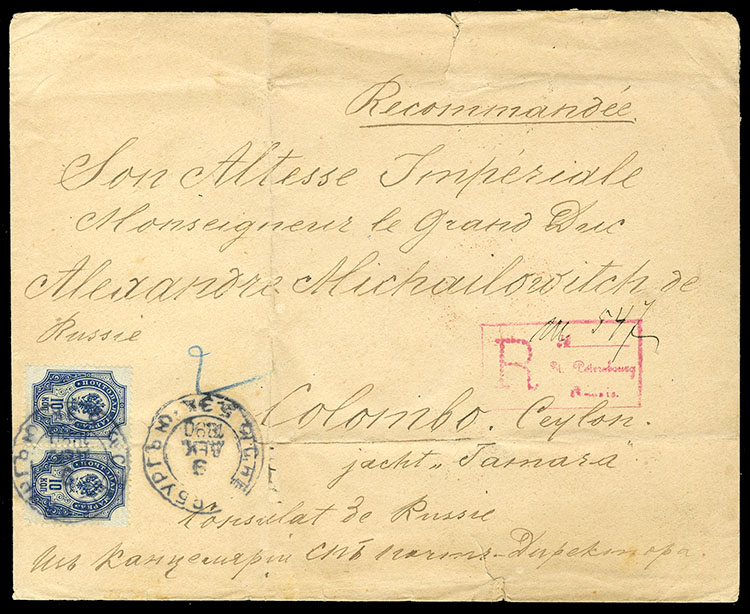 Recommandée
Son Altesse Impériale
Monseigneur le Grand Duc
Alexandre Michailowitch de
Russie
№ 547
R
St. Petersbourg
2
Colombo. Ceylon.
jacht „Tamara"
Consulat de Russie
Изъ Канцеляріи СПБ Почт-Директора.
ПОЧТОВАЯ МАРКА
10 КОП 10
10 КОП 10
3
ДЕК
1890